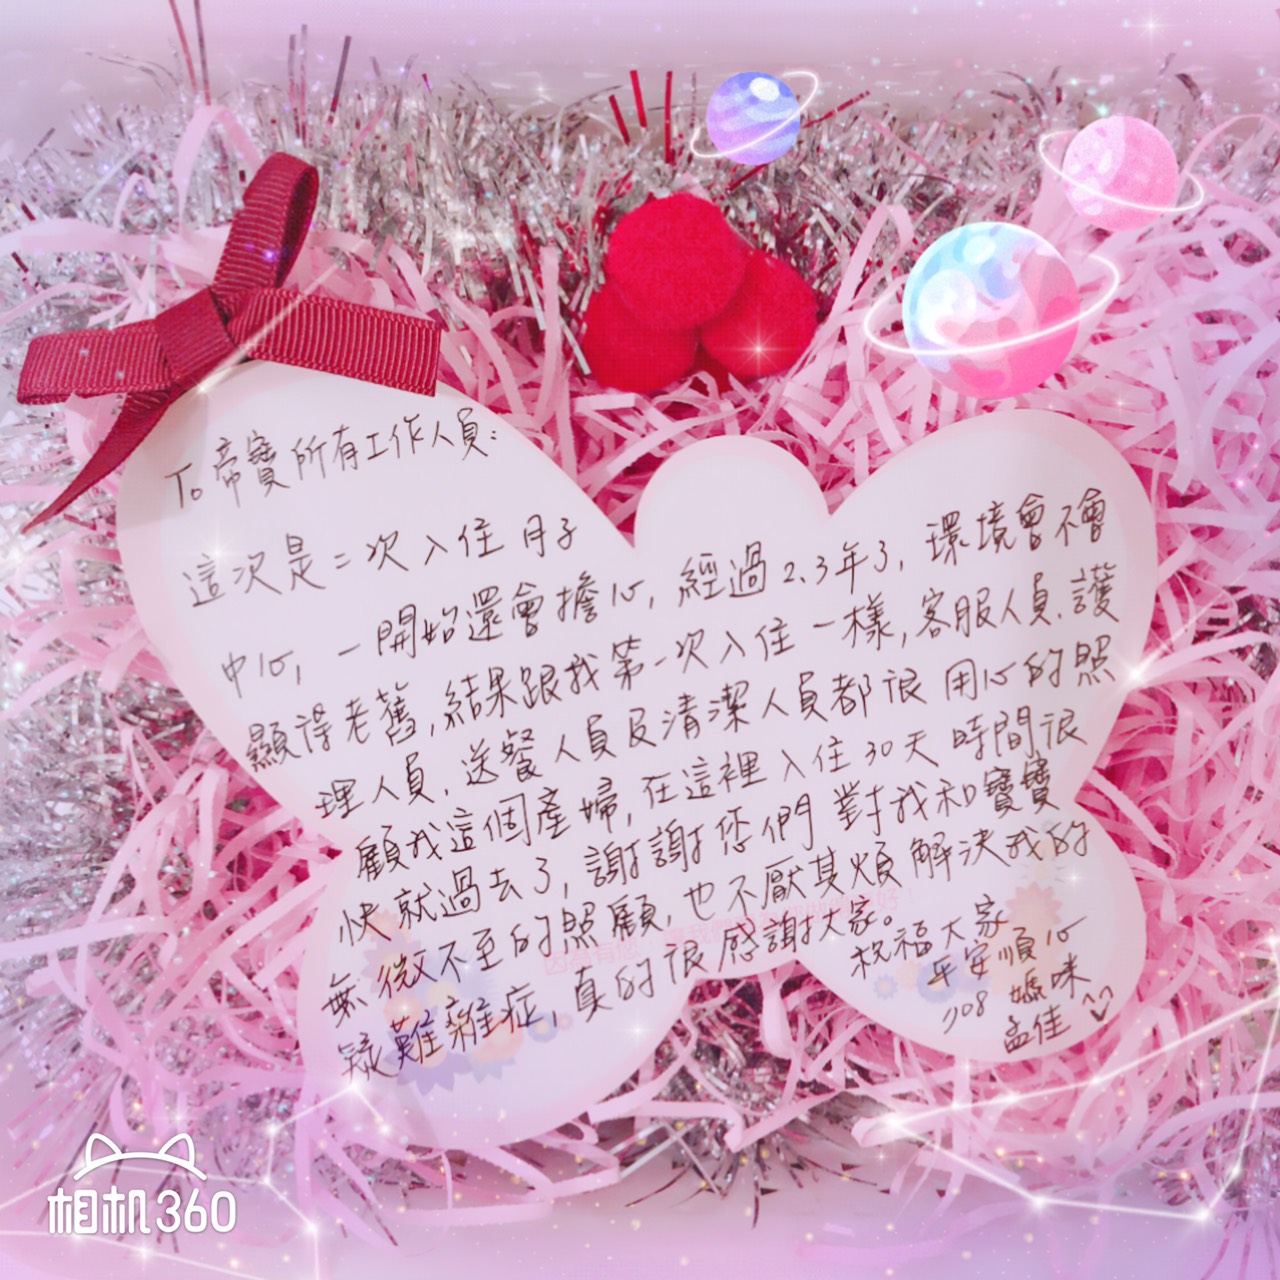 To 帝寶所有工作人員:
這次是二次入住月子
中心,一開始還會擔心,經過2.3年了,環境會不會
顯得老舊,結果跟我第一次入住一樣,客服人員.護
理人員.送餐人員及清潔人員都很用心的照
顧我這個產婦,在這裡入住30天時間很
快就過去了,謝謝您們對我和寶寶
無微不至的照顧,也不厭其煩解決我的
疑難雜症,真的很感謝大家。
祝福大家
平安順心
908 媽咪
孟佳
相机360